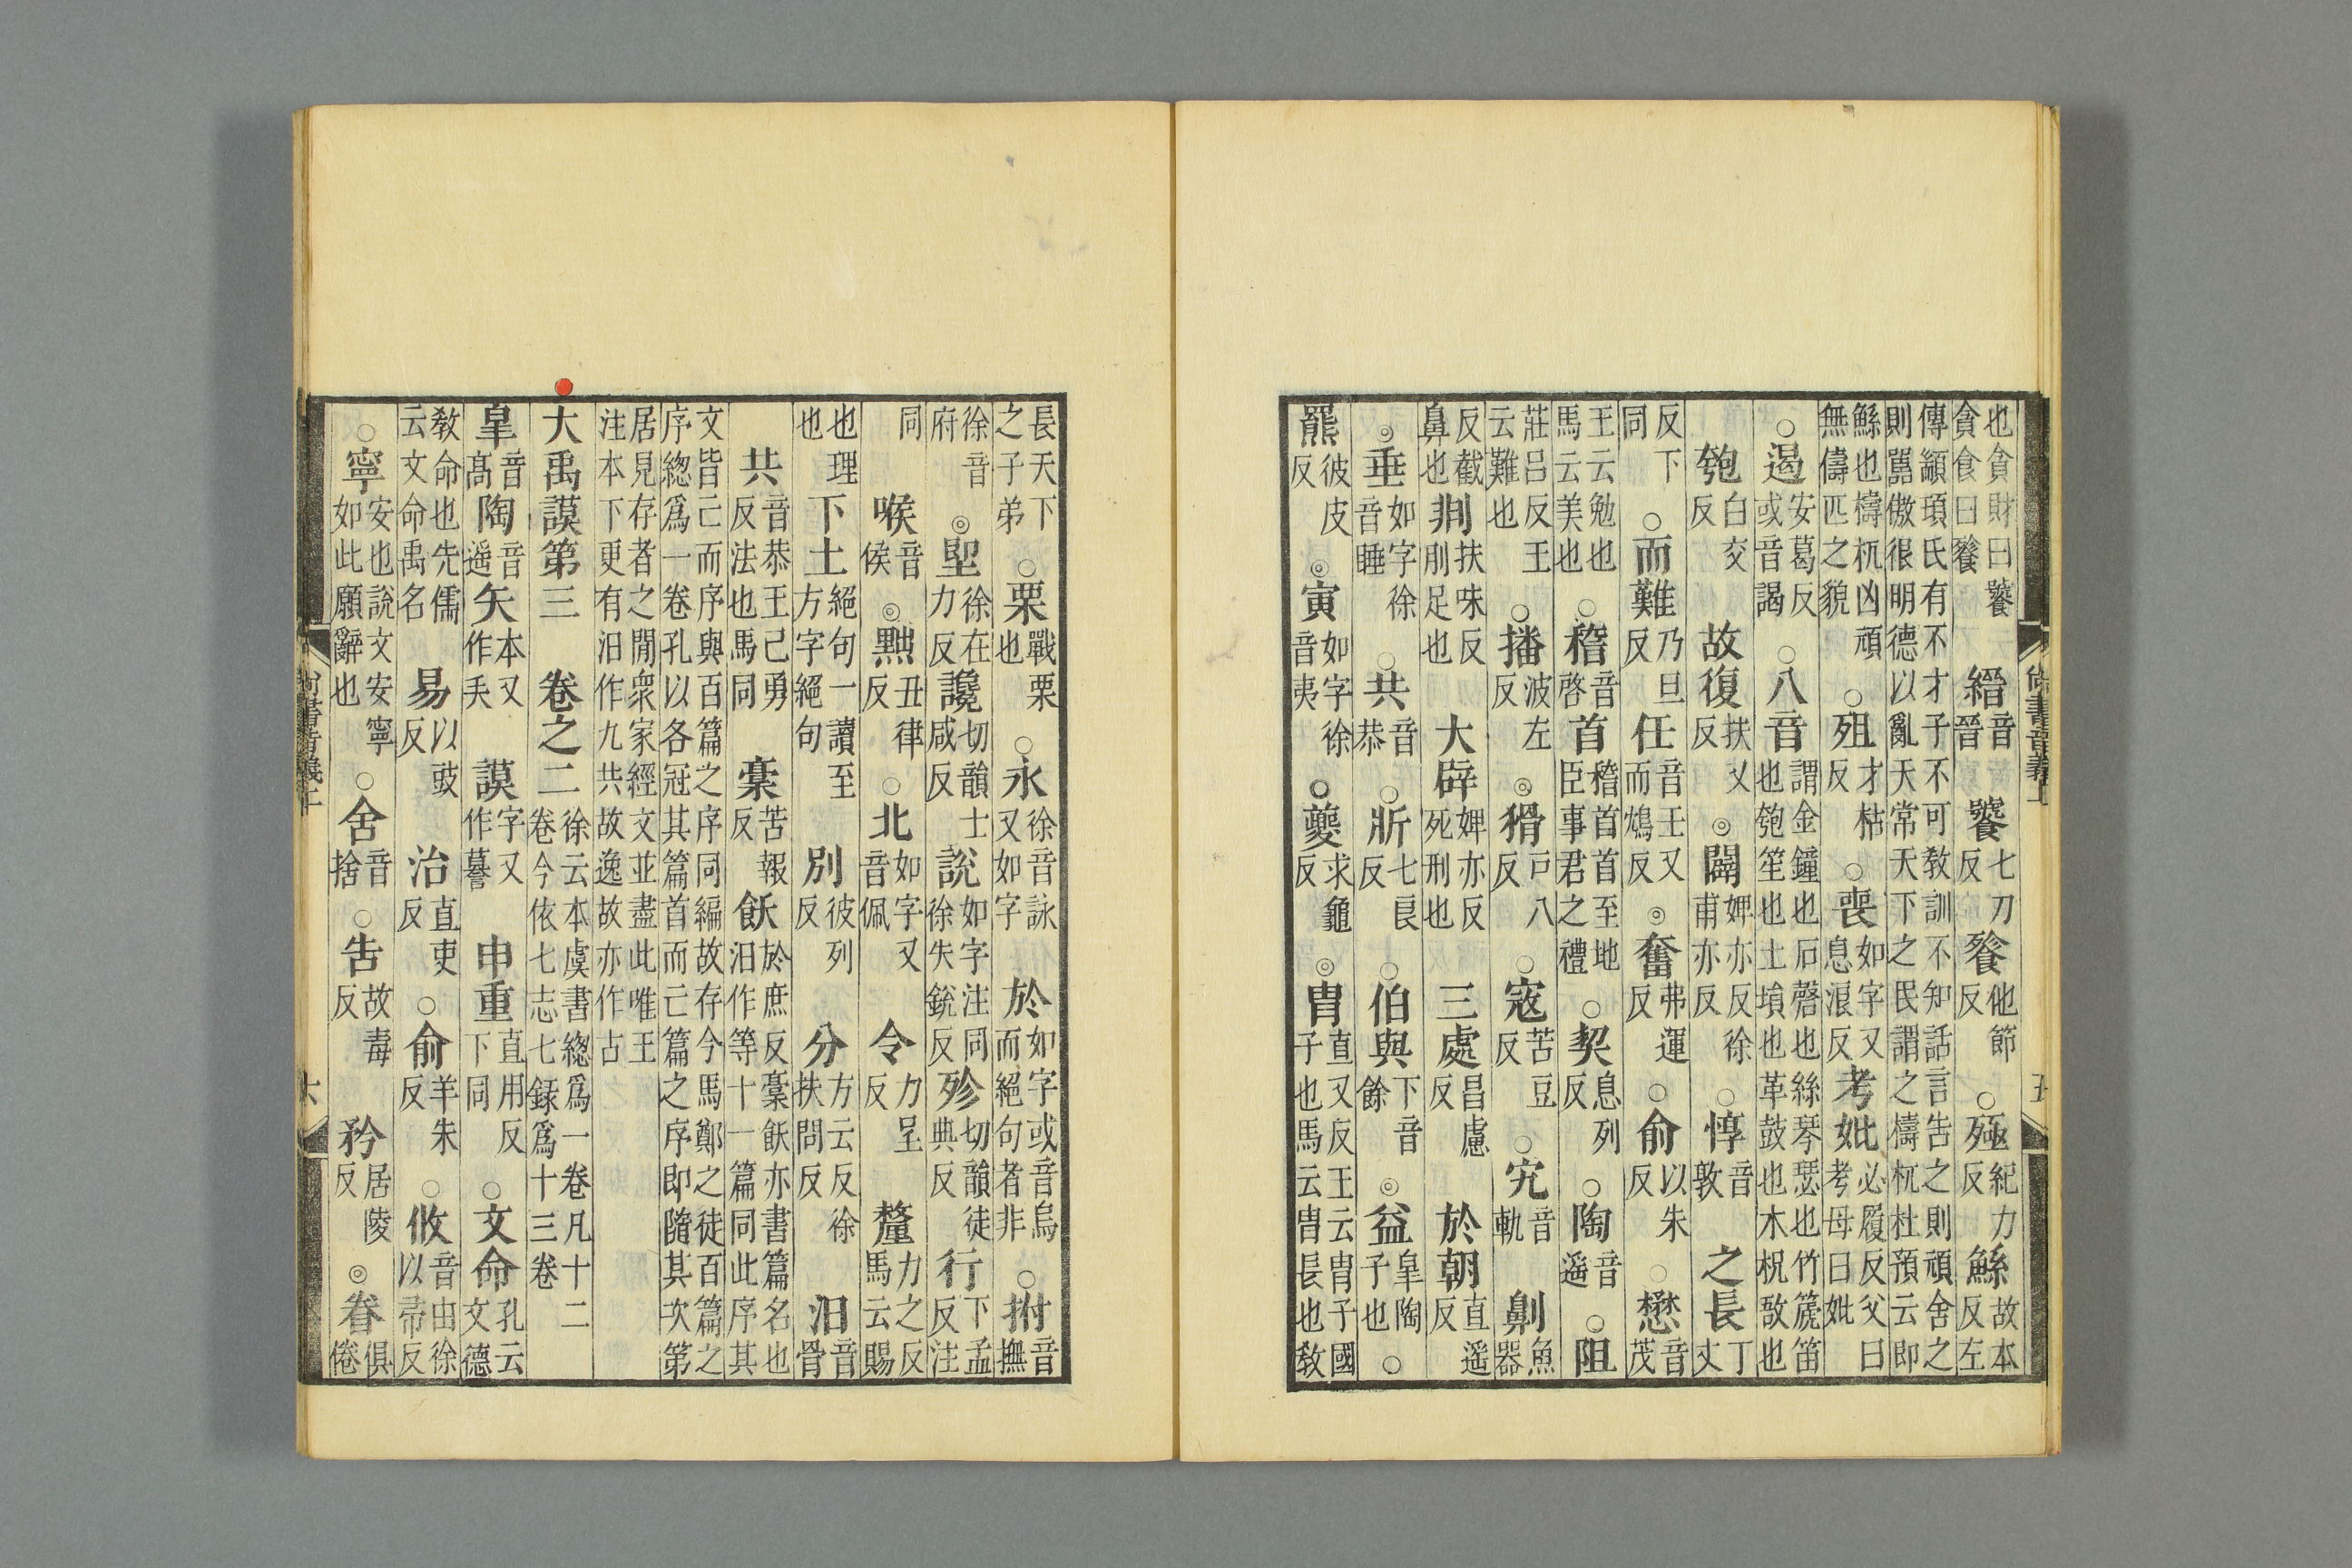 也貪財曰饕貪食曰餮 縉音晉 饕七刀反 餮他節反 ○殛紀力反 鯀故本反左
傳顓頊氏有不才子不可教訓不知話言告之則頑舍之則嚚傲很明德以亂天常天下之民謂之檮杌杜預云即
鯀也檮杌凶頑無儔匹之貌 ○殂才枯反 ○喪如字又息浪反 考妣必履反父曰考母曰妣
○遏安葛反或音謁 ○八音謂金鐘也石磬也絲琴瑟也竹箎笛也匏笙也土塤也革鼓也木柷敔也
匏白交反 故復扶又反 ◎闢婢亦反徐甫亦反 ○惇音敦 之長丁丈
反下同 ○而難乃旦反 任音壬又而鴆反 ◎奮弗運反 ○俞以朱反 ○懋音茂
王云勉也馬云美也 ○稽音啓 首稽首首至地臣事君之禮 ○契息列反 ○陶音遙 ○阻
莊呂反王云難也 ○播波左反 ◎猾戶八反 ○寇苦豆反 ○宄音軌 劓魚器
反截鼻也 剕扶味反刖足也 大辟婢亦反死刑也 三處昌慮反 於朝直遥反
◎垂如字徐音睡 ○共音恭 ○斨七良反 ○伯與下音餘 ◎益皐陶子也 ○
羆彼皮反 ◎寅如字徐音夷 ○夔求龜反 ◎胄直又反王云胄子國子也馬云胄長也教
尚書音義上 五
長天下之子弟 ○栗戰栗也 ○永徐音詠又如字 於如字或音烏而絕句者非 ○拊音撫
徐音府 ◎堲徐在力反 讒切韻士咸反 說如字注同徐失銳反 殄切韻徒典反 行下孟反注
同 喉音侯 ◎黜丑律反 ○北如字又音佩 令力呈反 釐力之反馬云賜
也理也 下土絕句一讀至方字絕句 別彼列反 分方云反徐扶問反 汩音骨
共音恭王己勇反法也馬同 稾苦報反 飫於庶反稾飫亦書篇名也汩作等十一篇同此序其
文皆亡而序與百篇之序同編故存今馬鄭之徒百篇之序總爲一卷孔以各冠其篇首而亡篇之序即隨其次第
居見存者之閒衆家經文並盡此唯王注本下更有汩作九共故逸故亦作古
大禹謨第三 卷之二徐云本虞書總爲一卷凡十二卷今依七志七録爲十三卷
皐音髙 陶音遥 矢本又作𠂕 謨字又作謩 申重直用反下同 ○文命孔云文德
教命也先儒云文命禹名 易以豉反 治直吏反 ○俞羊朱反 ○攸音由徐以帚反
○寧安也說文安寧如此願辭也 ○舍音捨 ○告故毒反 矜居陵反 ◎眷俱倦
尚書音義上 六